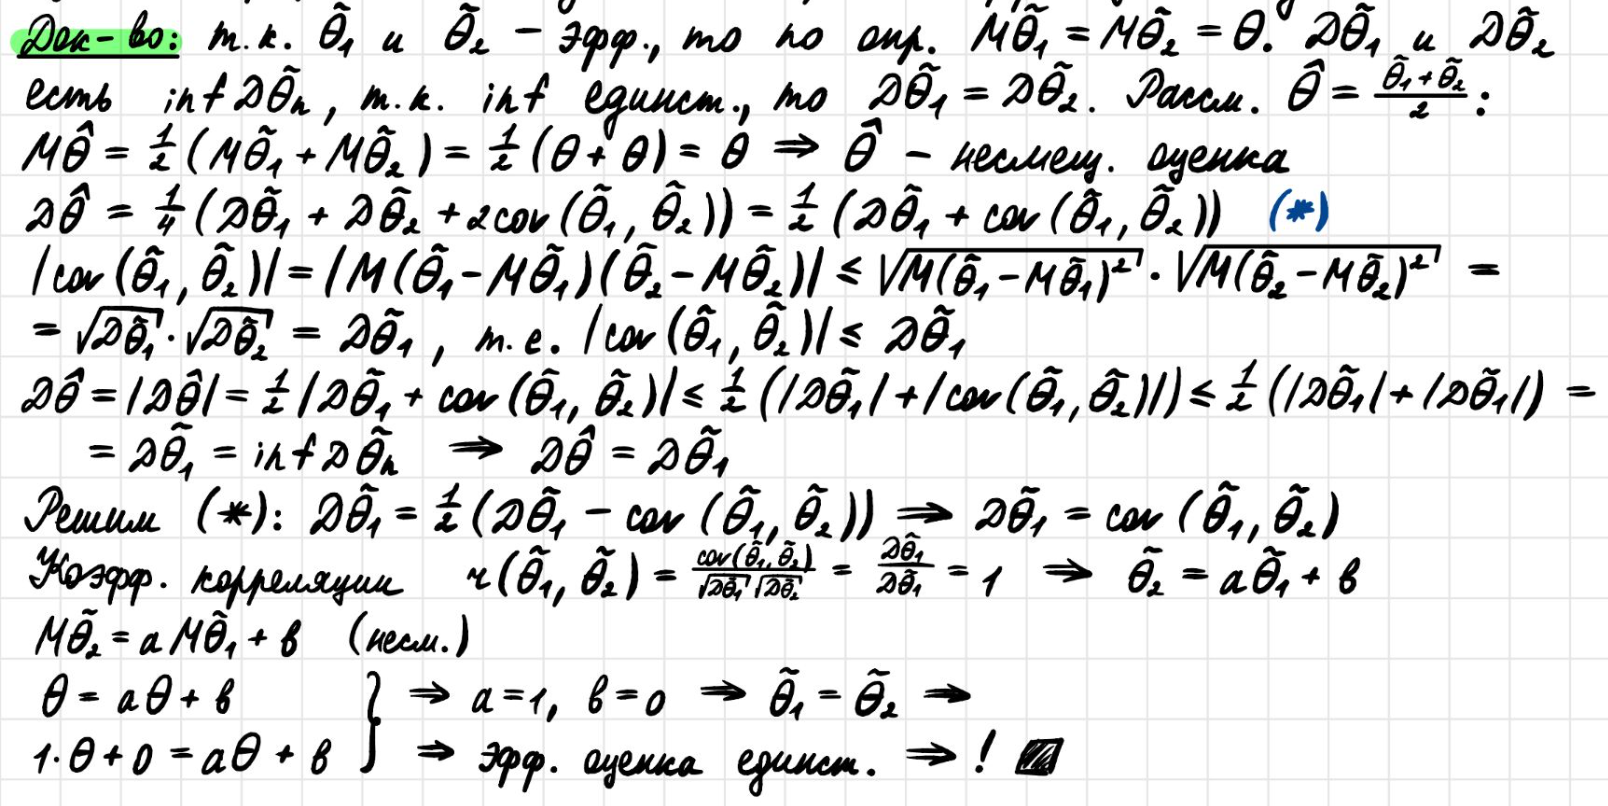 Док-во: т.к. θ̃₁ и θ̃₂ - эфф., то по опр. Mθ̃₁ = Mθ̃₂ = θ. Dθ̃₁ и Dθ̃₂
есть inf Dθ̃ₙ, т.к. inf единст., то Dθ̃₁ = Dθ̃₂. Рассм. θ̂ = (θ̃₁ + θ̃₂)/2 :
Mθ̂ = 1/2 (Mθ̃₁ + Mθ̃₂) = 1/2 (θ + θ) = θ ⇒ θ̂ - несмещ. оценка
Dθ̂ = 1/4 (Dθ̃₁ + Dθ̃₂ + 2cov(θ̃₁, θ̃₂)) = 1/2 (Dθ̃₁ + cov(θ̃₁, θ̃₂)) (*)
|cov(θ̃₁, θ̃₂)| = |M(θ̃₁ - Mθ̃₁)(θ̃₂ - Mθ̃₂)| ≤ √(M(θ̃₁ - Mθ̃₁)²) · √(M(θ̃₂ - Mθ̃₂)²) =
= √(Dθ̃₁) · √(Dθ̃₂) = Dθ̃₁, т.е. |cov(θ̃₁, θ̃₂)| ≤ Dθ̃₁
Dθ̂ = |Dθ̂| = 1/2 |Dθ̃₁ + cov(θ̃₁, θ̃₂)| ≤ 1/2 (|Dθ̃₁| + |cov(θ̃₁, θ̃₂)|) ≤ 1/2 (|Dθ̃₁| + |Dθ̃₁|) =
= Dθ̃₁ = inf Dθ̃ₙ ⇒ Dθ̂ = Dθ̃₁
Решим (*): Dθ̃₁ = 1/2 (Dθ̃₁ - cov(θ̃₁, θ̃₂)) ⇒ Dθ̃₁ = cov(θ̃₁, θ̃₂)
Коэфф. корреляции r(θ̃₁, θ̃₂) = cov(θ̃₁, θ̃₂)/(√Dθ̃₁ √Dθ̃₂) = Dθ̃₁/Dθ̃₁ = 1 ⇒ θ̃₂ = aθ̃₁ + b
Mθ̃₂ = a Mθ̃₁ + b (несм.)
θ = aθ + b } ⇒ a = 1, b = 0 ⇒ θ̃₁ = θ̃₂ ⇒
1·θ + 0 = aθ + b } ⇒ эфф. оценка единст. ⇒ !